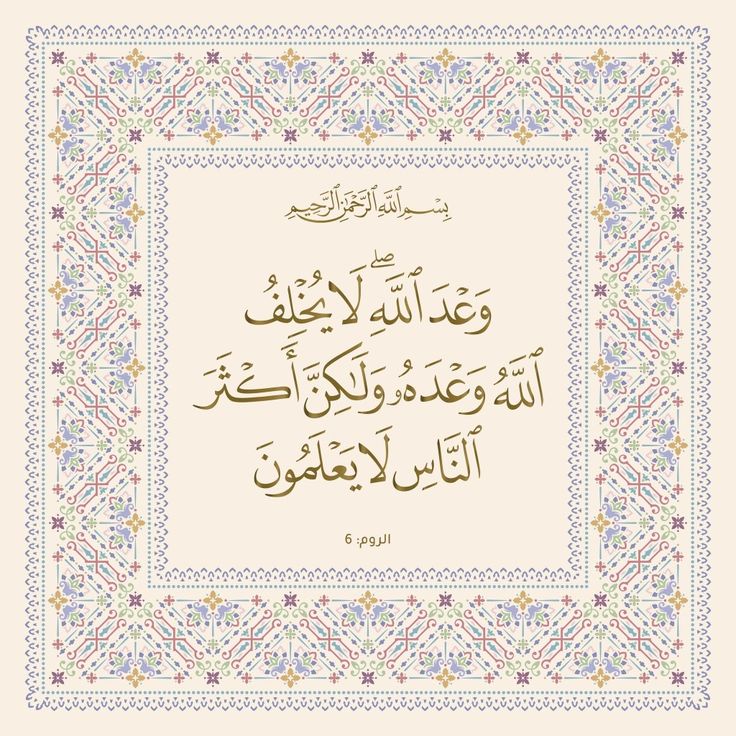 بِسْمِ ٱللَّهِ ٱلرَّحْمَٰنِ ٱلرَّحِيمِ
وَعْدَ ٱللَّهِ ۖ لَا يُخْلِفُ
ٱللَّهُ وَعْدَهُۥ وَلَٰكِنَّ أَكْثَرَ
ٱلنَّاسِ لَا يَعْلَمُونَ
الروم: 6